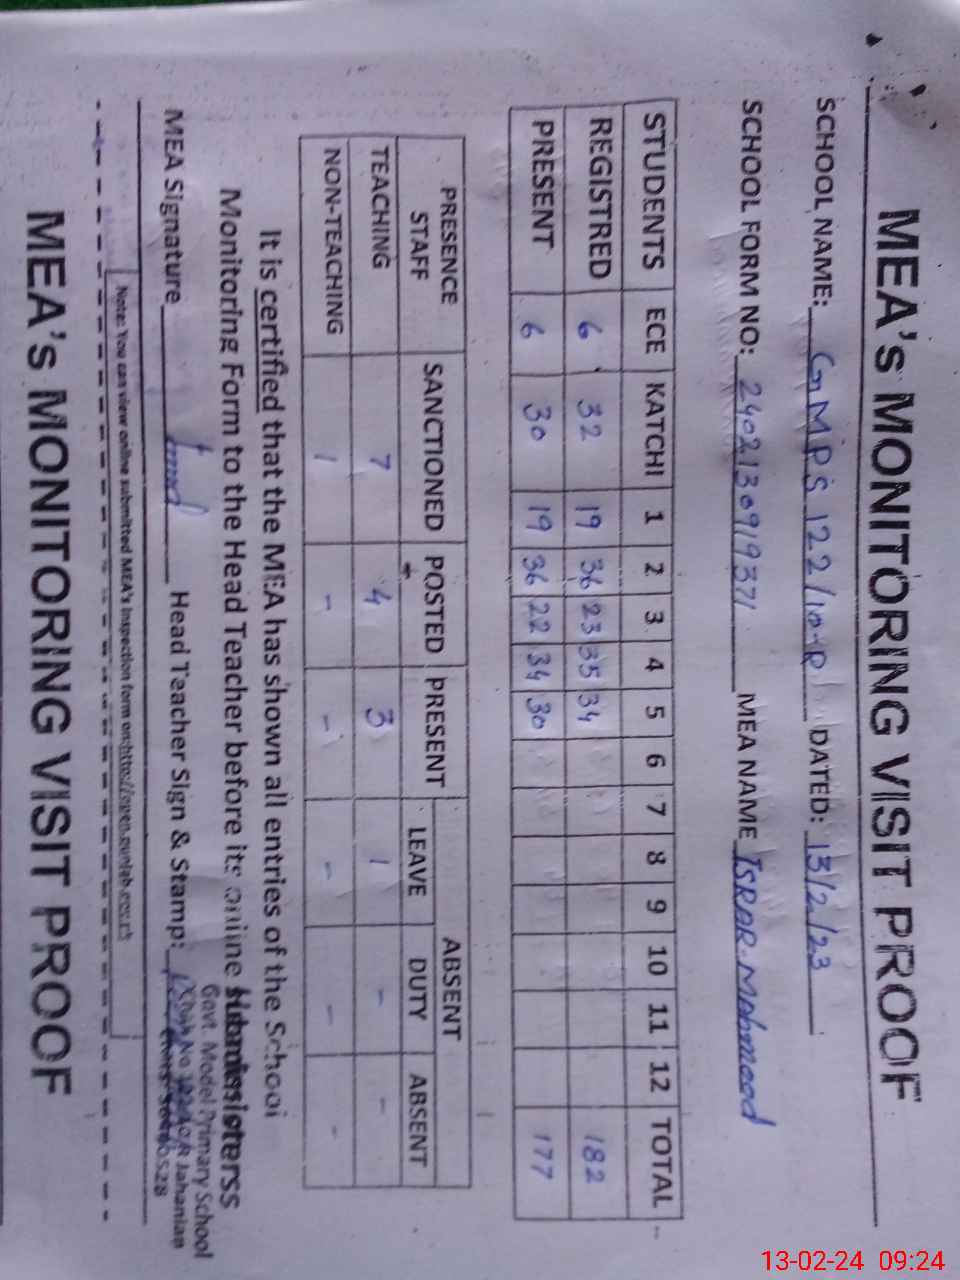 MEA's MONITORING VISIT PROOF
SCHOOL NAME: GMPS 122/10-R DATED: 13/2/23
SCHOOL FORM NO: 2402130919371 MEA NAME ISRAR Mahmood
STUDENTS ECE KATCHI 1 2 3 4 5 6 7 8 9 10 11 12 TOTAL
REGISTRED 6 32 19 36 23 35 34 182
PRESENT 6 30 19 36 22 34 30 177
PRESENCE STAFF SANCTIONED POSTED PRESENT ABSENT
LEAVE DUTY ABSENT
TEACHING 7 4 3 1 - -
NON-TEACHING 1 - - - - -
It is certified that the MEA has shown all entries of the School
Monitoring Form to the Head Teacher before its online
MEA Signature Head Teacher Sign & Stamp:
Govt. Model Primary School
Jahanian
Note: You can view online submitted MEA's Inspection form on:http://open.punjab.gov.pk
MEA's MONITORING VISIT PROOF
13-02-24 09:24